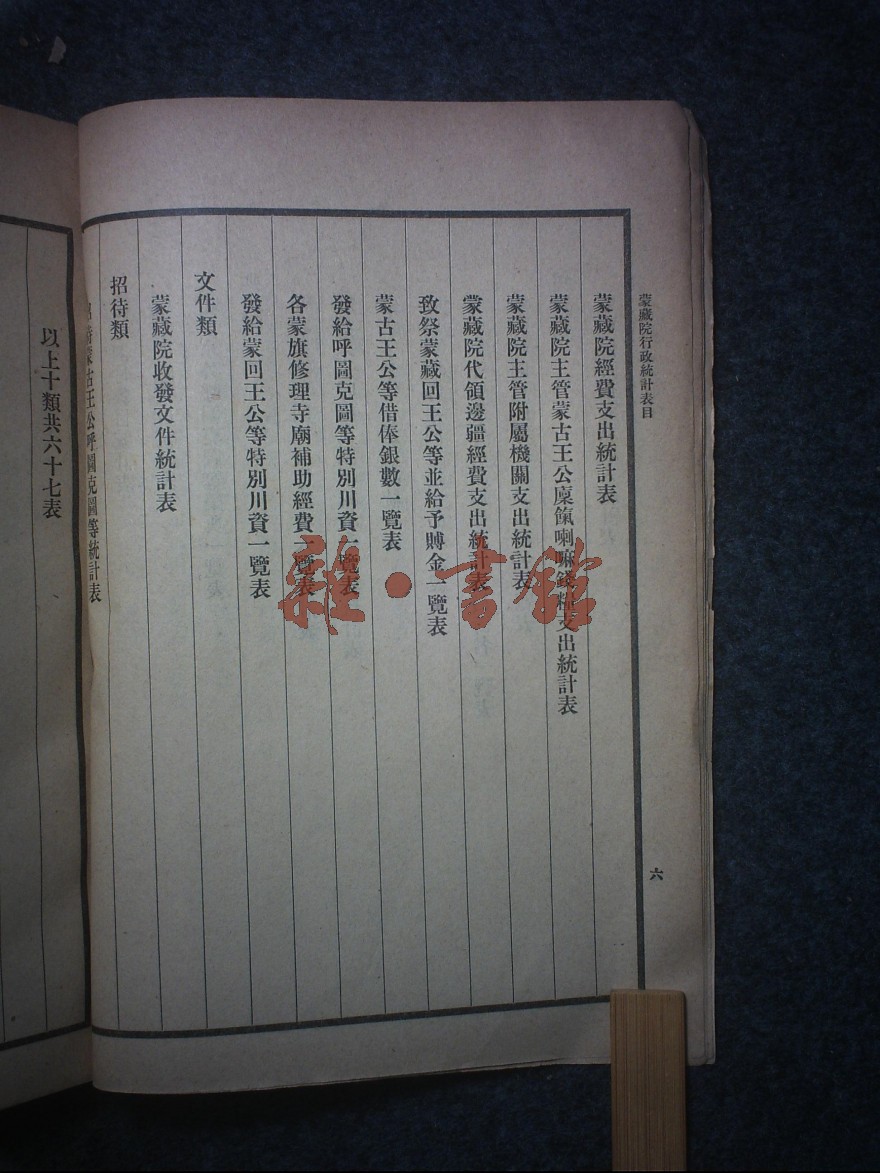 蒙藏院行政統計表目
六
蒙藏院經費支出統計表
蒙藏院主管蒙古王公廩餼喇嘛錢糧支出統計表
蒙藏院主管附屬機關支出統計表
蒙藏院代領邊疆經費支出統計表
致祭蒙藏回王公等並給予賻金一覽表
蒙古王公等借俸銀數一覽表
發給呼圖克圖等特別川資一覽表
各蒙旗修理寺廟補助經費一覽表
發給蒙回王公等特別川資一覽表
文件類
蒙藏院收發文件統計表
招待類
待蒙古王公呼圖克圖等統計表
以上十類共六十七表
雜·書館